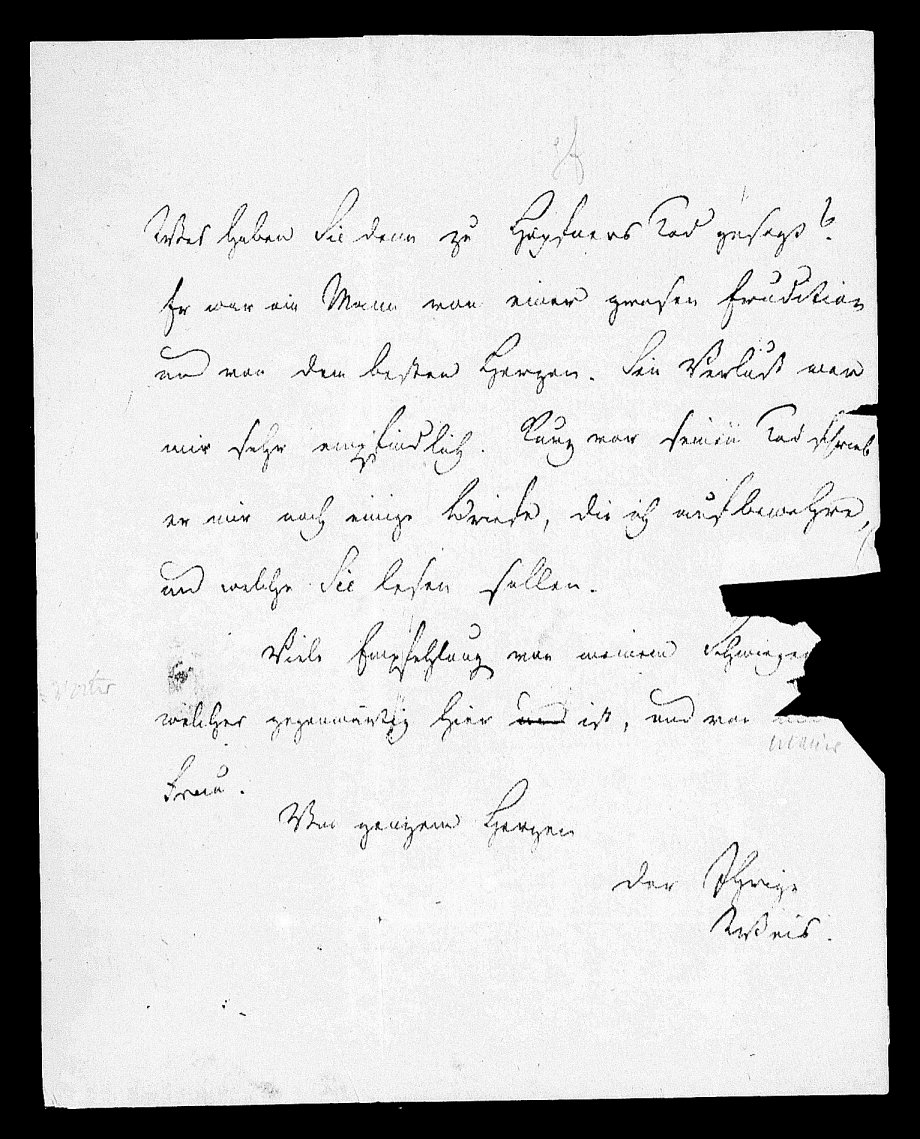 Was haben Sie denn zu Höpfners Tod gesagt?
Er war ein Mann von einer grosen Erudition
und von dem besten Herzen. Sein Verlust war
mir sehr empfindlich. Kurz vor seinem Tod schrieb
er mir noch einige Briefe, die ich aufbewahre,
und welche Sie lesen sollen.
Viele Empfehlung von meinem Schwieger
vater
welcher gegenwärtig hier und ist, und von
meiner
Frau.
Von ganzem Herzen
der Ihrige
Weis.